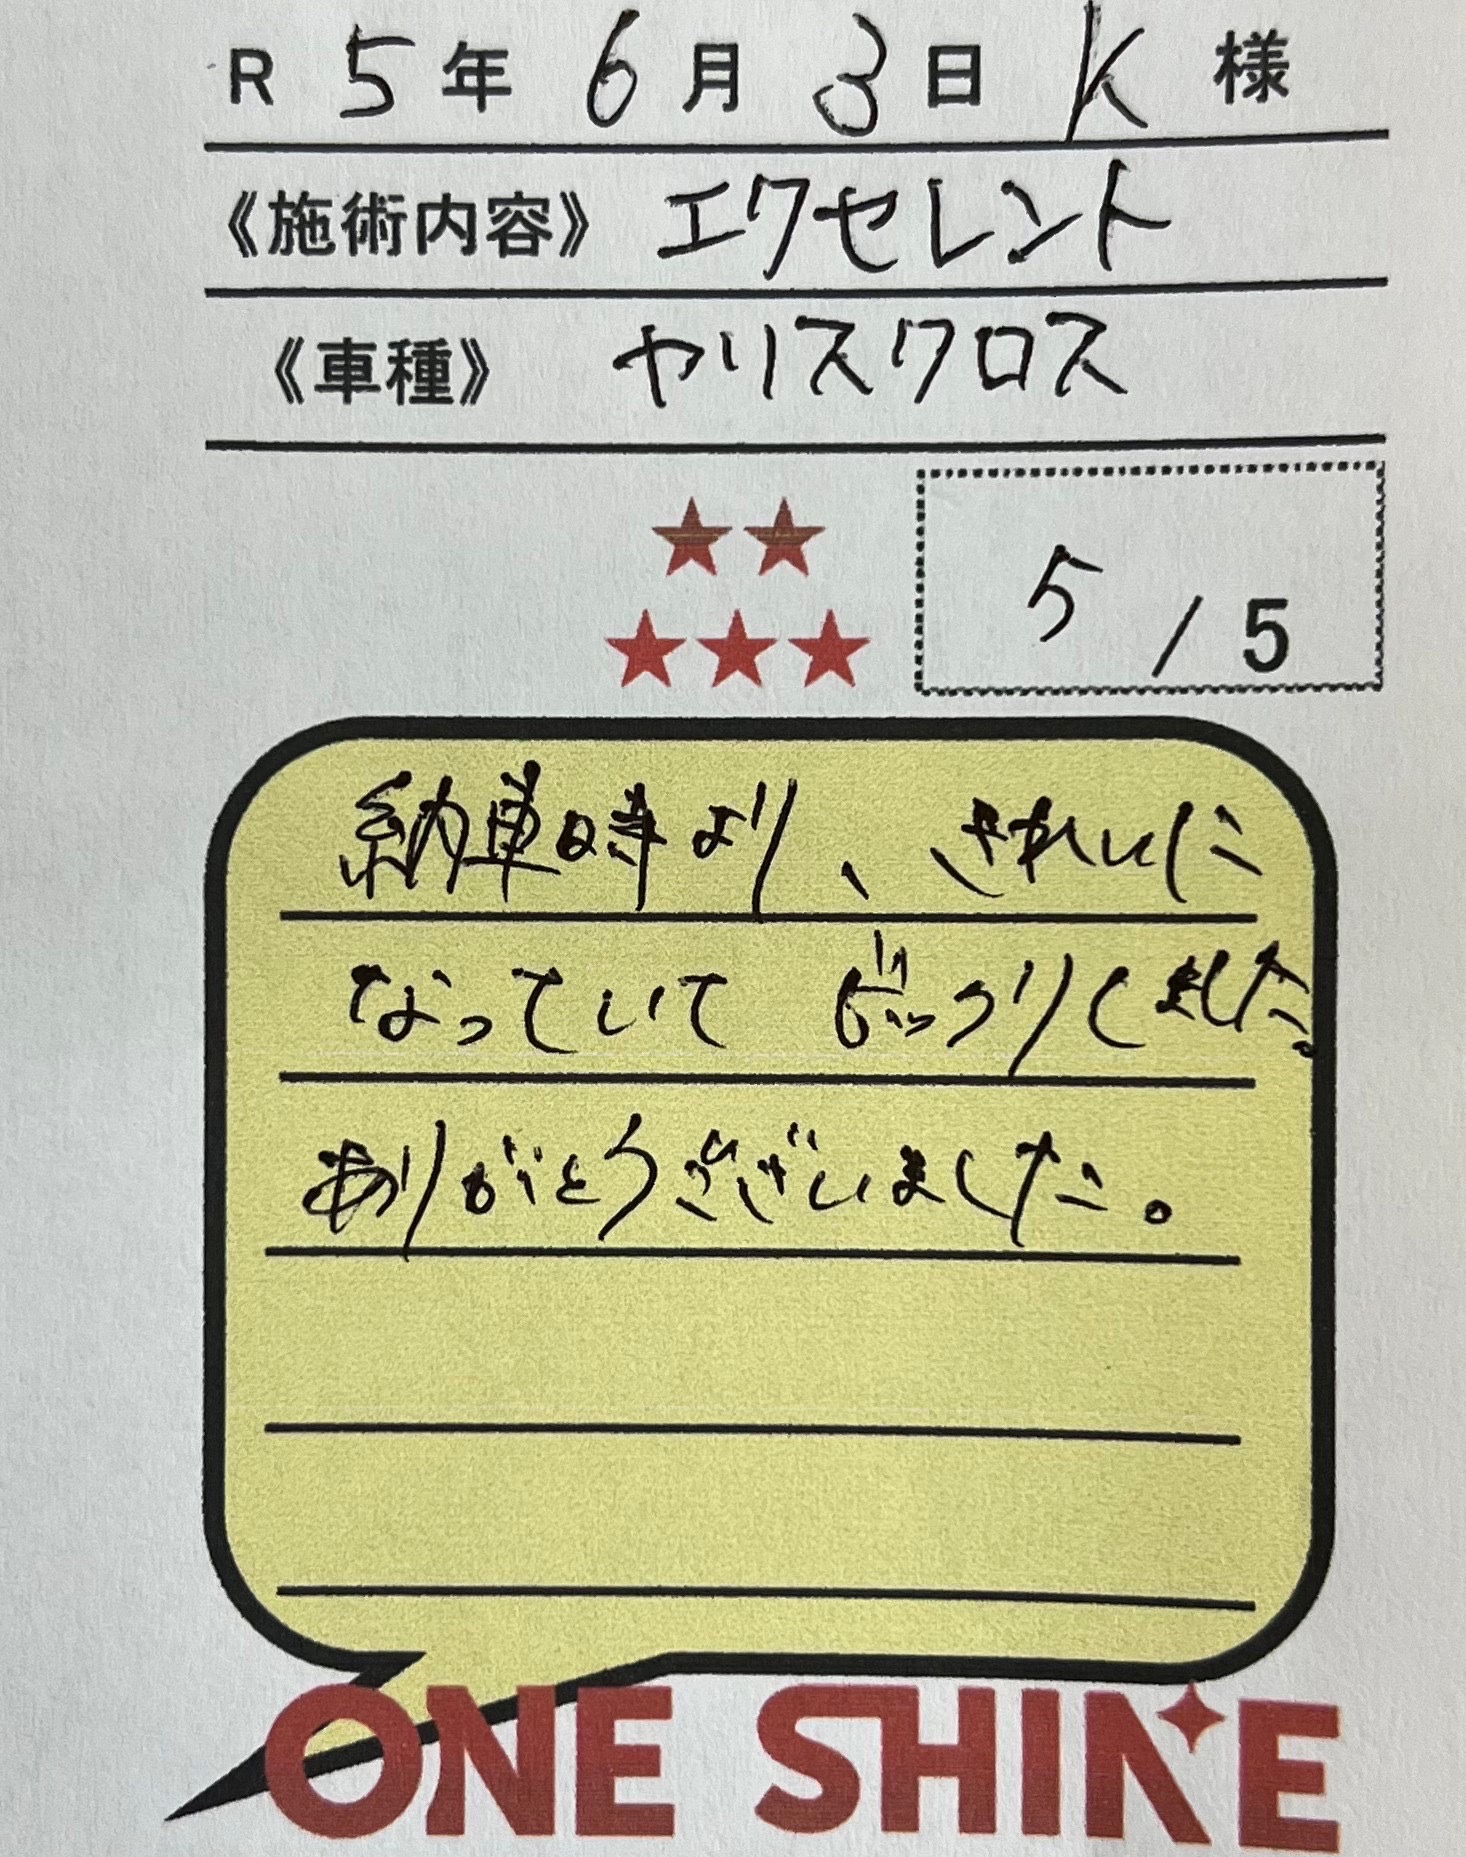 R 5年 6月 3日 K 様
《施術内容》 エクセレント
《車種》 ヤリスクロス
5 / 5
納車時より、きれいに
なっていて びっくりしました。
ありがとうございました。
ONE SHINE